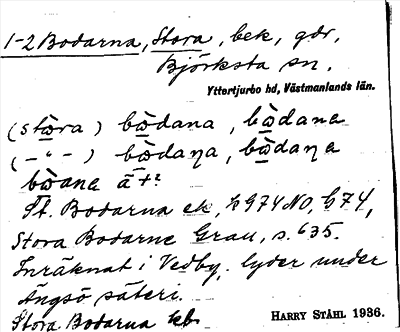 1-2 Bodarna, Stora, bek, gdr,
Björksta sn.
Yttertjurbo hd, Västmanlands län.
(stɷ̀ra) bɷ̀dana, bɷ̀dana
(– " –) bɷ̀daƞa, bɷ̀daƞa
bɷ̀ana
St. Bodarna ek, h 974 NO, G 74,
Stora Bodarne Grau, s. 635.
Inräknat i Vedby, lyder under
Ängsö säteri.
Stora Bodarna
HARRY STÅHL 1936.